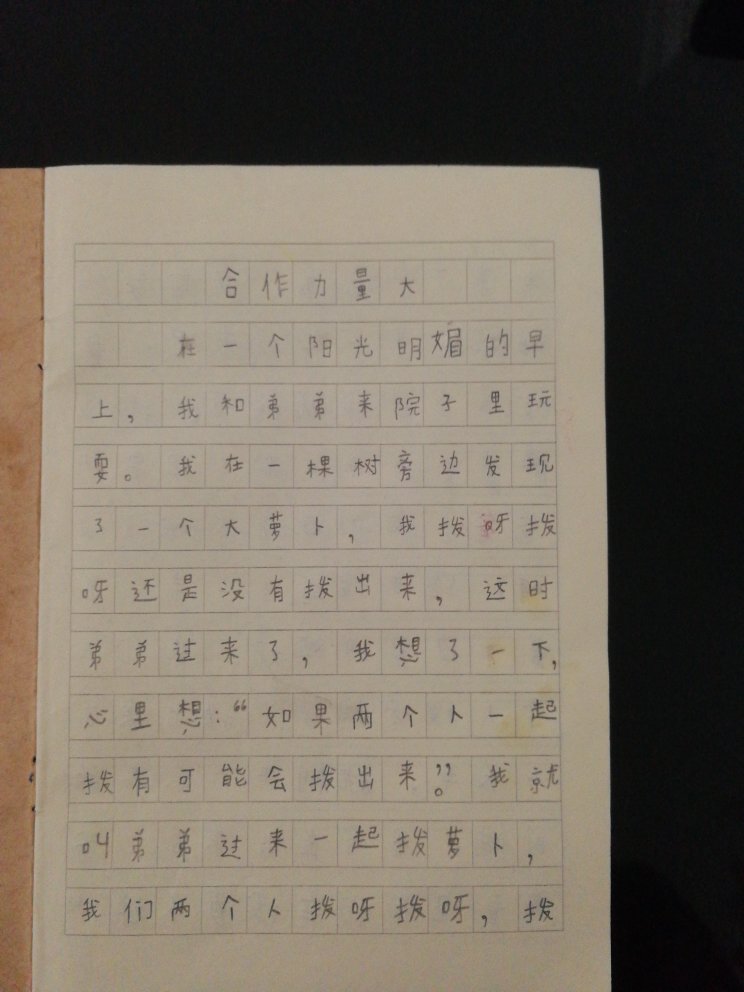 合作力量大
在一个阳光明媚的早
上，我和弟弟来院子里玩
耍。我在一棵树旁边发现
了一个大萝卜，我拨呀拨
呀还是没有拨出来，这时
弟弟过来了，我想了一下，
心里想：“如果两个人一起
拨有可能会拨出来”。我就
叫弟弟过来一起拨萝卜，
我们两个人拨呀拨呀，拨